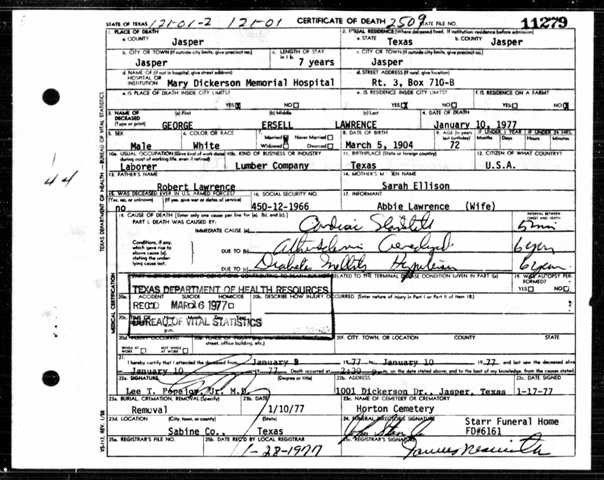 STATE OF TEXAS 121-01-2 121-01 CERTIFICATE OF DEATH 2509 STATE FILE NO. 11279
1. PLACE OF DEATH
a. COUNTY Jasper
2. USUAL RESIDENCE (Where deceased lived. If institution: residence before admission)
a. STATE Texas b. COUNTY Jasper
b. CITY OR TOWN (If outside city limits, give precinct no.) Jasper
c. LENGTH OF STAY in 1 b. 7 years
c. CITY OR TOWN (If outside city limits, give precinct no.) Jasper
d. NAME OF (If not in hospital, give street address) HOSPITAL OR INSTITUTION Mary Dickerson Memorial Hospital
d. STREET ADDRESS (If rural, give location) Rt. 3, Box 710-B
e. IS PLACE OF DEATH INSIDE CITY LIMITS? YES NO
e. IS RESIDENCE INSIDE CITY LIMITS? YES NO
f. IS RESIDENCE ON A FARM? YES NO
3. NAME OF DECEASED (Type or print) (a) First GEORGE (b) Middle ERSELL (c) Last LAWRENCE
4. DATE OF DEATH January 10, 1977
5. SEX Male
6. COLOR OR RACE White
7. Married Never Married Widowed Divorced
8. DATE OF BIRTH March 5, 1904
9. AGE (In years last birthday) 72
IF UNDER 1 YEAR Months Days IF UNDER 24 HRS. Hours Min.
10a. USUAL OCCUPATION (Give kind of work done during most of working life, even if retired) Laborer
10b. KIND OF BUSINESS OR INDUSTRY Lumber Company
11. BIRTHPLACE (State or foreign country) Texas
12. CITIZEN OF WHAT COUNTRY? U.S.A.
13. FATHER'S NAME Robert Lawrence
14. MOTHER'S MAIDEN NAME Sarah Ellison
15. WAS DECEASED EVER IN U.S. ARMED FORCES? (Yes, no, or unknown) (If yes, give war or dates of service) no
16. SOCIAL SECURITY NO. 450-12-1966
17. INFORMANT Abbie Lawrence (Wife)
18. CAUSE OF DEATH (Enter only one cause per line for (a), (b), and (c).)
PART I. DEATH WAS CAUSED BY:
INTERVAL BETWEEN ONSET AND DEATH
IMMEDIATE CAUSE (a) Cardiac 5 min
Conditions, if any, which gave rise to above cause (a), stating the underlying cause last.
DUE TO (b) 6 years
DUE TO (c) Diabetes Mellitis 6 years
19. WAS AUTOPSY PERFORMED? YES NO
TEXAS DEPARTMENT OF HEALTH RESOURCES
20a. ACCIDENT SUICIDE HOMICIDE
20b. DESCRIBE HOW INJURY OCCURRED. (Enter nature of injury in Part I or Part II of item 18.)
REC'D MAR 16 1977
BUREAU OF VITAL STATISTICS
20f. CITY, TOWN, OR LOCATION COUNTY STATE
21. I hereby certify that I attended the deceased from January 19 77 January 10 19 77 and last saw the deceased alive
January 10 77 Death occurred at 2:30 on the date stated above, and to the best of my knowledge, from the causes stated.
22a. SIGNATURE Lee T. Jr. M.D.
22b. ADDRESS 1001 Dickerson Dr., Jasper, Texas
22c. DATE SIGNED 1-17-77
23a. BURIAL, CREMATION, REMOVAL (Specify) Removal
23b. DATE 1/10/77
23c. NAME OF CEMETERY OR CREMATORY Horton Cemetery
23d. LOCATION (City, town, or county) (State) Sabine Co., Texas
24. FUNERAL DIRECTOR'S SIGNATURE Starr Funeral Home FD#6161
25a. REGISTRAR'S FILE NO.
25b. DATE REC'D BY LOCAL REGISTRAR 1-28-1977
25c. REGISTRAR'S SIGNATURE
TEXAS DEPARTMENT OF HEALTH - BUREAU OF VITAL STATISTICS
MEDICAL CERTIFICATION
44